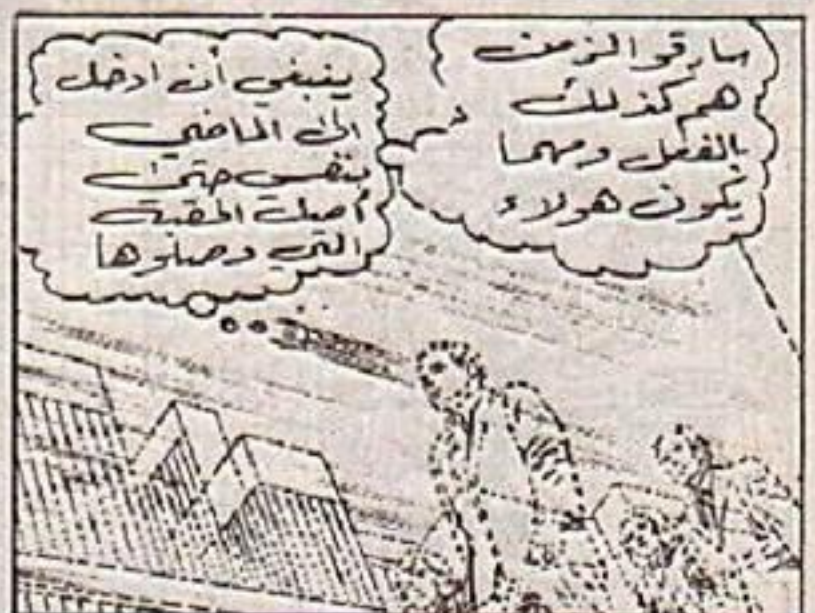 سارقوا الزمن
هم كذلك
بالفعل ومهما
يكون هولاء
ينبغي أن ادخل
الى الماضي
بنفسي حتى
أصل الحقبة
التي وصلوها